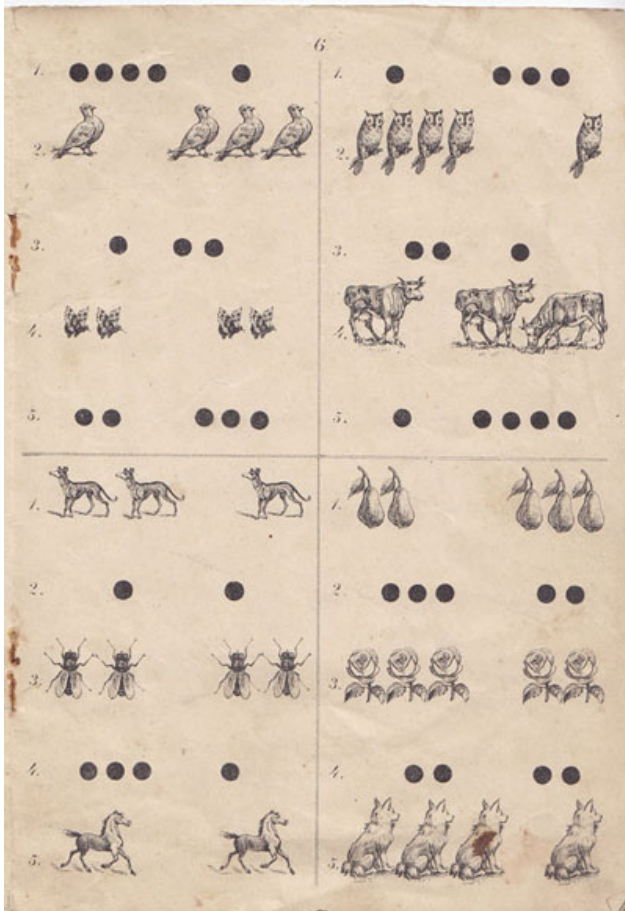 6
1.
2.
3.
4.
5.
1.
2.
3.
4.
5.
1.
2.
3.
4.
5.
1.
2.
3.
4.
5.